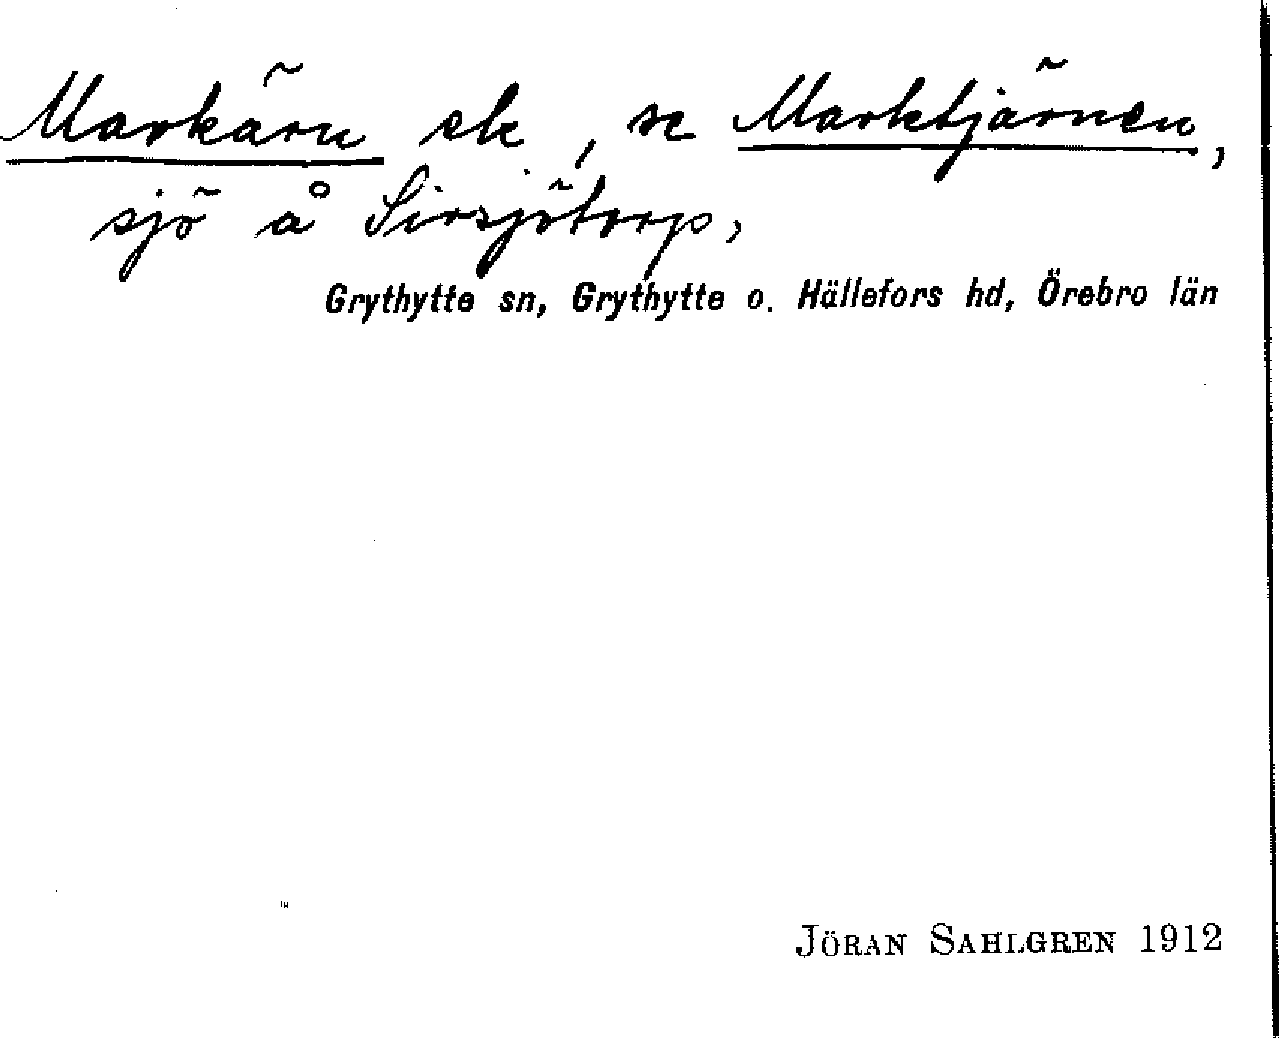 Markärn ek, se Marktjärnen,
sjö å Sirsjötorp,
Grythytte sn, Grythytte o. Hällefors hd, Örebro län
JÖRAN SAHLGREN 1912